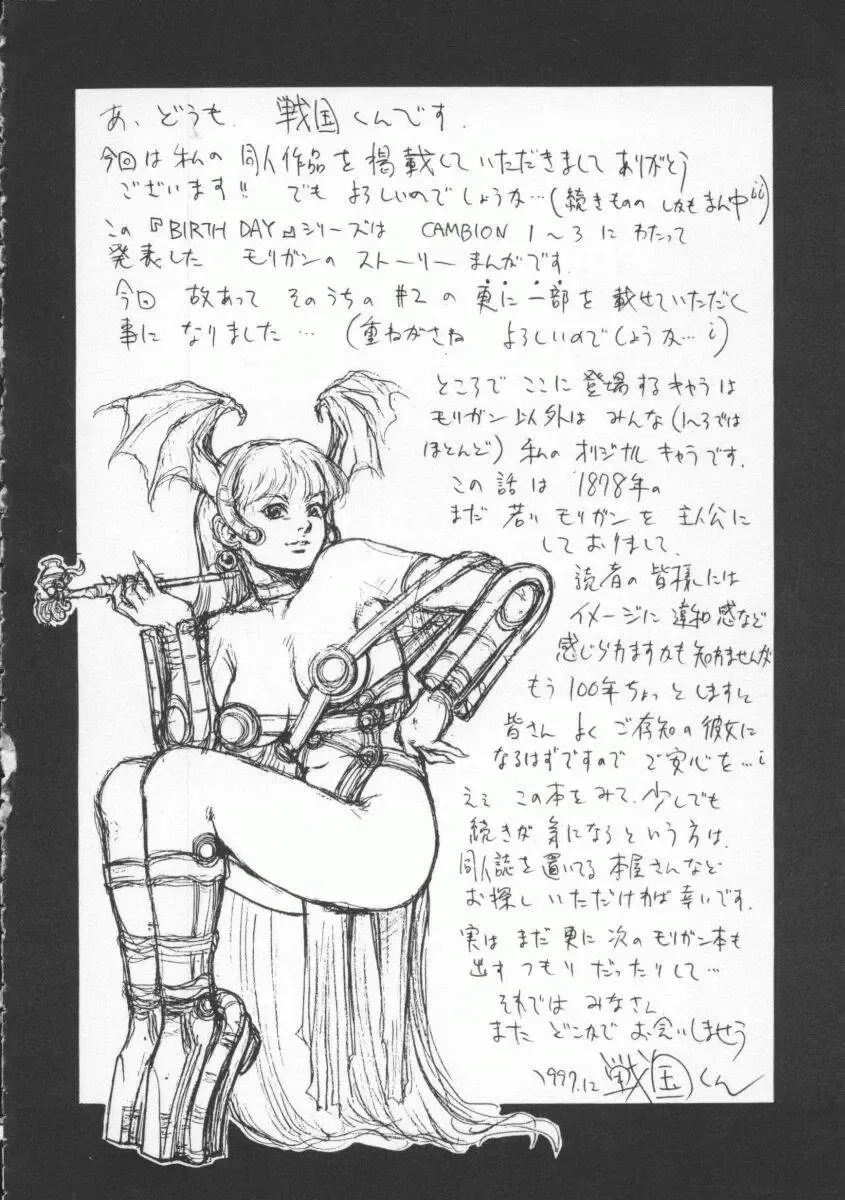 あ、どうも、戦国くんです。
今回は私の同人作品を掲載していただきましてありがとう
ございます!! でもよろしいのでしょうか…(続きもの しかもまん中;;)
この『BIRTH DAY』シリーズは CAMBION 1〜3 にわたって
発表した モリガンのストーリーまんがです。
今回 故あって そのうちの #2 の 更に一部を 載せていただく
事に なりました…(重ねがさね よろしいのでしょうか…;)
ところで ここに登場するキャラは
モリガン以外は みんな(1〜3では
ほとんど) 私の オリジナル キャラです。
この話は 1878年の
まだ 若い モリガンを 主人公に
しておりまして、
読者の皆様には
イメージに 違和感など
感じられますかも知れませんが
もう100年ちょっとしますと
皆さん よく ご存知の彼女に
なるはずですので ご安心を…;
ええ この本をみて、少しでも
続きが 気になる という方は、
同人誌を置いてる 本屋さんなど
お探し いただければ幸いです。
実は まだ 更に 次のモリガン本も
出す つもり だったりして…
それでは みなさん
また どこかで お会いしませう
1997.12 戦国くん